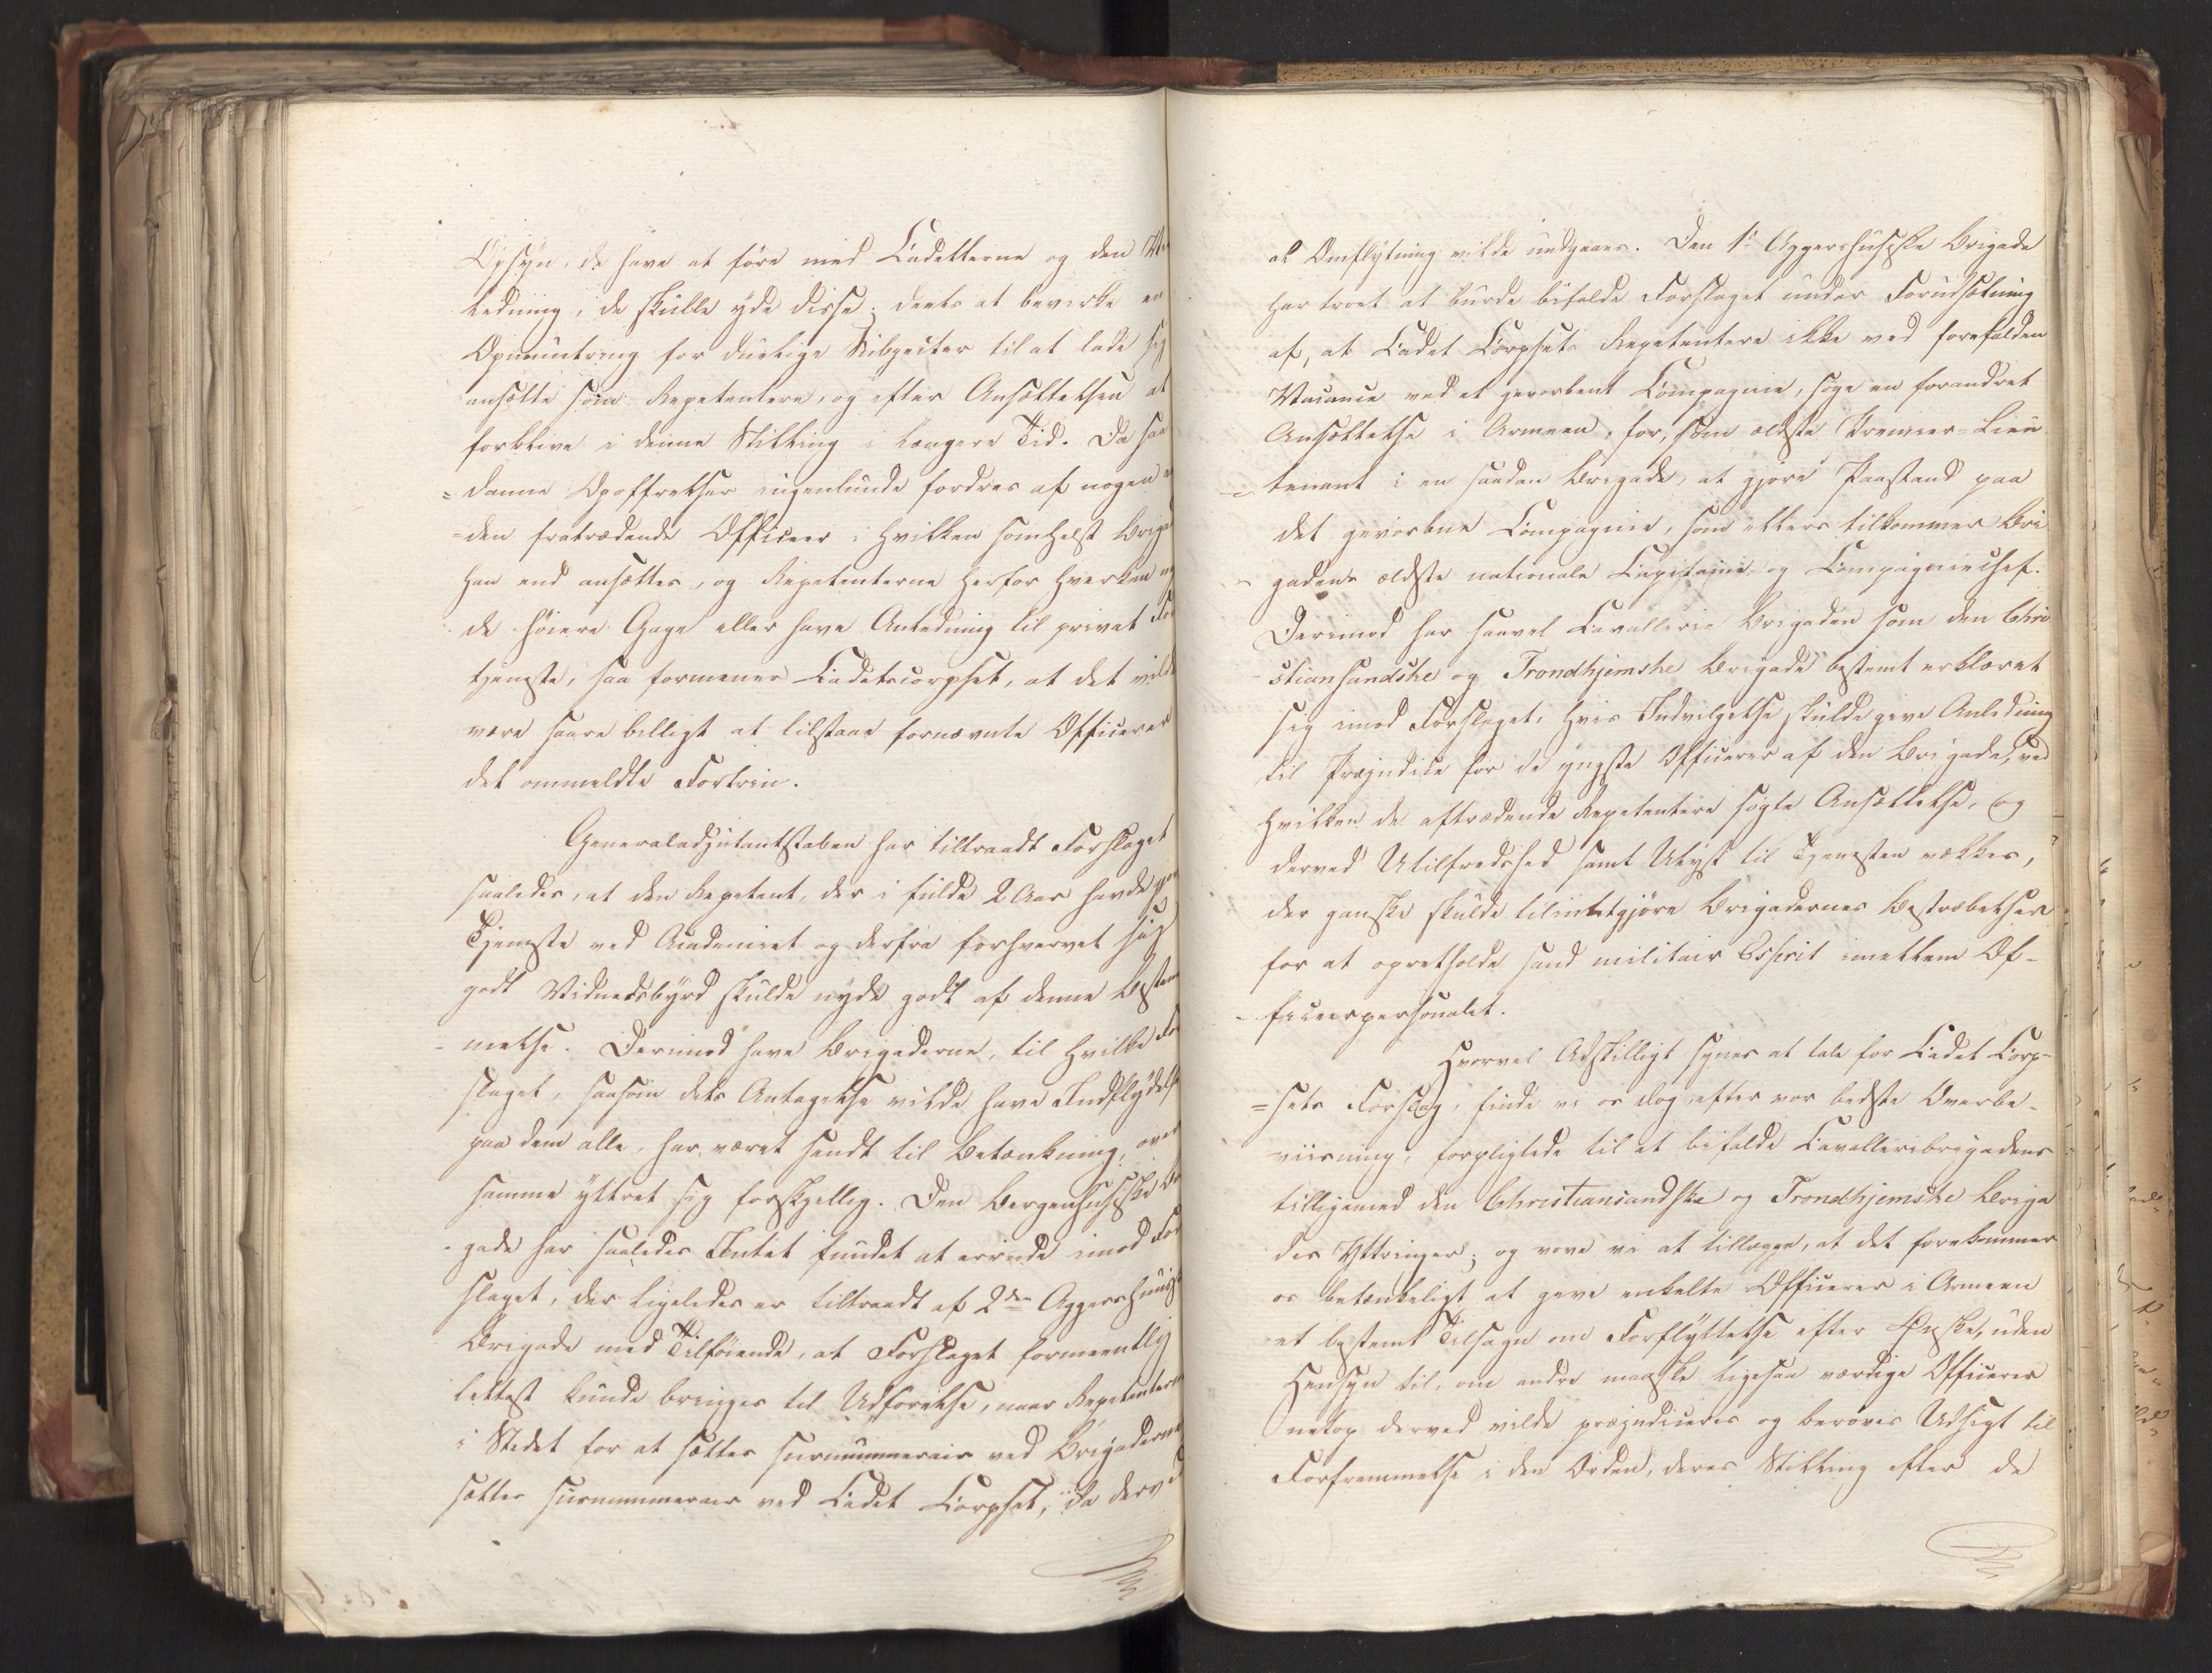 Opsyn, de have at føre med Cadetterne og den Vei
ledning, de skulle yde disse; deels at bevirke en
Opmuntring for duelige Subjecter til at lade sig
ansætte som Repetentere, og efter Ansættelsen at
forblive i denne Stilling i længere Tid. Da saa
=danne Opoffrelser ingenlunde fordres af nogen
=den fratrædende Officeer i hvilken somhelst Briga
han end ansættes, og Repetenterne herfor hverken
de høiere Gage eller have Anledning til privat For
tjeneste, saa formener Cadetcorpset, at det vilde
være saare billigt at tilstaae fornævnte Officerer
det ommeldte Fortrin.
Generaladjutantstaben har tiltraadt Forslaget
saaledes, at den Repetent, der i fulde 2 Aar havde gjort
Tjeneste ved Academiet og derfra forhvervet sig
godt Vidnedsbyrd skulde nyde godt af denne Bestem
-melse. Derimod have Brigaderne, til hvilke For
slaget, saasom dets Antagelse vilde have Indflydelse
paa dem alle, har været sendt til Betænkning, over
samme yttret sig forskjellig. Den Bergenhusiske Bri
-gade har saaledes Intet fundet at erindre imod For
slaget, der ligeledes er tiltraadt af 2den Aggershuusiske
Brigade med Tilføiende, at Forslaget formeentlig
lettest kunde bringes til Udførelse, naar Repetenterne
i Stedet for at sættes surnummerair ved Brigaderne
sættes surnummerair ved Cadet Corpset, da derved
al Omflytning vilde undgaaes. Den 1ste Aggershusiske Brigade
har troet at burde bifalde Forslaget under Forudsætning
af, at Cadet Corpsets Repetentere ikke ved forefalden
Vacance ved et gevorbent Compagnie, søge en forandret
Ansættelse i Armeen, for, som ældste Premier-Lieu
=tenant i en saadan Brigade, at gjøre Paastand paa
det gevorbne Compagnie, som ellers tilkommer Bri
-gadens ældste nationale Capitaine og Compagniechef.
Derimod har saavel Cavallerie Brigaden som den Chri
-stiansandske og Trondhjemske Brigade bestemt erklæret
sig imod Forslaget, hvis Indvilgelse skulde give Anledning
til Præjudice for de yngste Officerer af den Brigade, ved
hvilken de aftrædende Repetentere søgte Ansættelse, og
derved Utilfredshed samt Ulyst til Tjenesten vækkes,
der ganske skulde tilintetgjøre Brigadernes Bestræbelser
for at opretholde sand militair Esprit imellem Of-
-ficeerpersonalet.
Hvorvel Adskilligt synes at tale for Cadet Corp-
=sets Forslag, finde vi os dog efter vor bedste Overbe-
viisning, forpligtede til at bifalde Cavalleriebrigadens
tilligemed den Christiansandske og Trondhjemske Briga
des Yttringer; og vove vi at tillægge, at det forekommer
os betænkeligt at give enkelte Officerer i Armeen
et bestemt Tilsagn om Forflyttelse efter Ønske, uden
Hensyn til, om andre maaske ligesaa værdige Officerer
netop derved vilde præjudiceres og berøves Udsigt til
Forfremmelse i den Orden, deres Stilling efter de